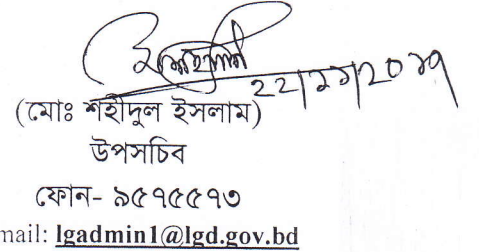 ২২/১১/২০১৭
(মোঃ শহীদুল ইসলাম)
উপসচিব
ফোন- ৯৫৭৫৫৭৩
mail: lgadmin1@lgd.gov.bd